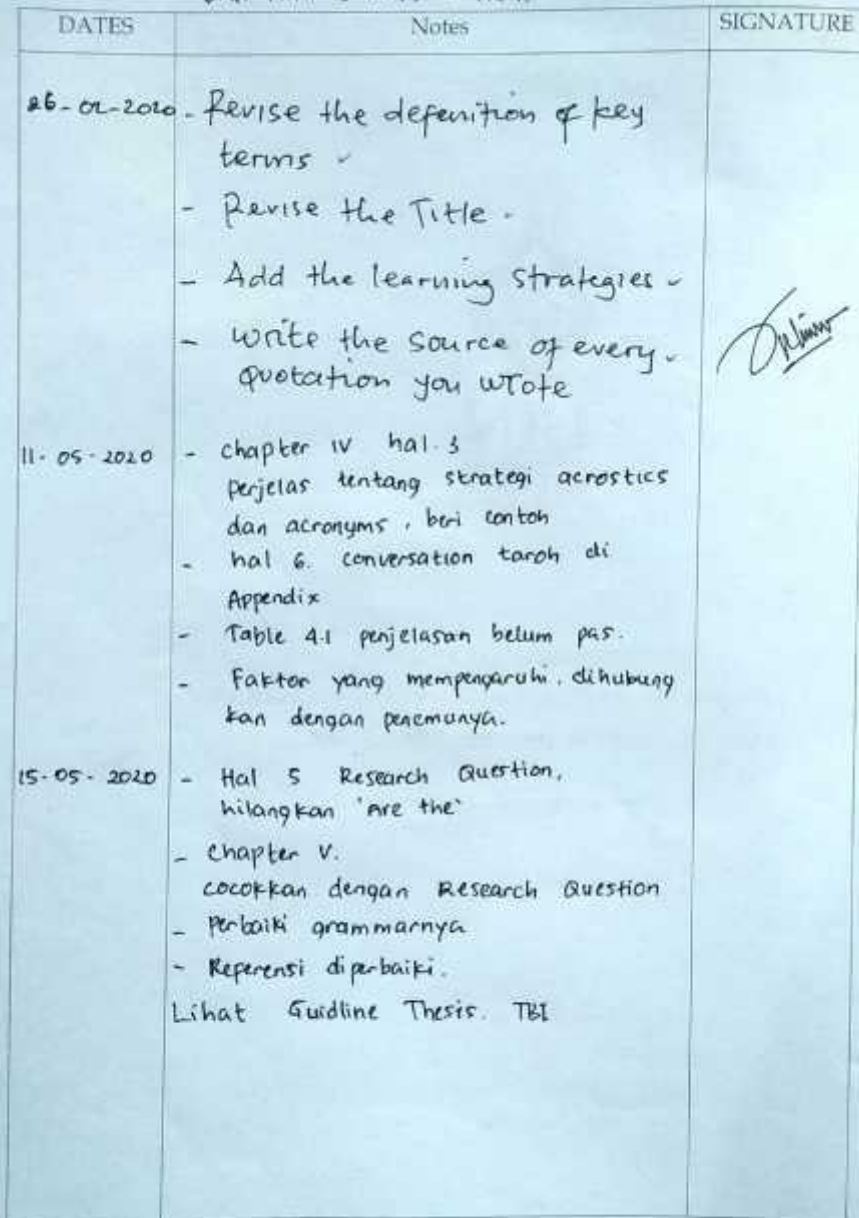 DATES Notes SIGNATURE
26-02-2020 - Revise the defenition of key
terms
- Revise the Title.
- Add the learning strategies
- write the source of every
quotation you wrote
11-05-2020 - chapter IV hal. 3
perjelas tentang strategi acrostics
dan acronyms, beri contoh
- hal 6. conversation taroh di
Appendix
- Table 4.1 penjelasan belum pas.
- Faktor yang mempengaruhi. dihubung
kan dengan penemunya.
15-05-2020 - Hal 5 Research Question,
hilangkan 'Are the'
- Chapter V.
cocokkan dengan Research Question
- Perbaiki grammarnya
- Referensi diperbaiki.
Lihat Guidline Thesis. TBI